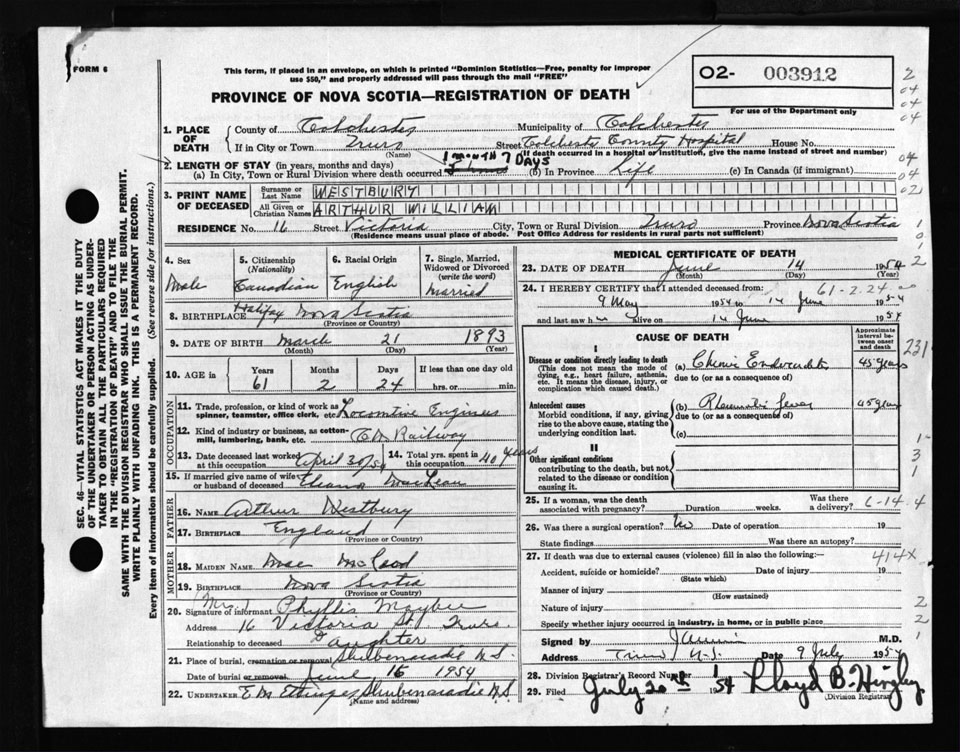 FORM 6
This form, if placed in an envelope, on which is printed "Dominion Statistics—Free, penalty for improper
use $50," and properly addressed will pass through the mail "FREE"
PROVINCE OF NOVA SCOTIA—REGISTRATION OF DEATH
02- 003912
For use of the Department only
1. PLACE OF DEATH
County of Colchester Municipality of Colchester
If in City or Town Truro Street Colchester County Hospital House No.
(Name) (If death occurred in a hospital or institution, give the name instead of street and number)
2. LENGTH OF STAY (in years, months and days)
(a) In City, Town or Rural Division where death occurred 1 MONTH 7 DAYS (b) In Province Life (c) In Canada (if immigrant)
3. PRINT NAME OF DECEASED
Surname or Last Name WESTBURY
All Given or Christian Names ARTHUR WILLIAM
RESIDENCE No. 16 Street Victoria City, Town or Rural Division Truro Province Nova Scotia
(Residence means usual place of abode. Post Office Address for residents in rural parts not sufficient)
4. Sex Male
5. Citizenship (Nationality) Canadian
6. Racial Origin English
7. Single, Married, Widowed or Divorced (write the word) Married
8. BIRTHPLACE Halifax Nova Scotia
(Province or Country)
9. DATE OF BIRTH March 21 1893
(Month) (Day) (Year)
10. AGE in Years Months Days If less than one day old
61 2 24 hrs. or min.
OCCUPATION
11. Trade, profession, or kind of work as spinner, teamster, office clerk, etc. Locomotive Engineer
12. Kind of industry or business, as cotton-mill, lumbering, bank, etc. C.N. Railway
13. Date deceased last worked at this occupation April 30/54
14. Total yrs. spent in this occupation 40 years
15. If married give name of wife or husband of deceased Eleanor MacLean
FATHER
16. Name Arthur Westbury
17. BIRTHPLACE England
(Province or Country)
MOTHER
18. MAIDEN NAME Mae
19. BIRTHPLACE Nova Scotia
(Province or Country)
20. Signature of informant Mrs. Phyllis Maybee
Address 16 Victoria St. Truro.
Relationship to deceased Daughter
21. Place of burial, cremation or removal Shubenacadie N.S.
Date of burial or removal June 16 1954
22. UNDERTAKER Shubenacadie N.S.
(Name and address)
MEDICAL CERTIFICATE OF DEATH
23. DATE OF DEATH June 14 1954
(Month) (Day) (Year)
24. I HEREBY CERTIFY that I attended deceased from: 61-2.24
9 May 1954 to 14 June 1954
and last saw h alive on 14 June 1954
CAUSE OF DEATH
Approximate interval between onset and death
I
Disease or condition directly leading to death
(This does not mean the mode of dying, e.g., heart failure, asthenia, etc. It means the disease, injury, or complication which caused death.)
(a) Chronic Endocarditis 45 years
due to (or as a consequence of)
Antecedent causes
Morbid conditions, if any, giving rise to the above cause, stating the underlying condition last.
(b) Rheumatic Fever 45 years
due to (or as a consequence of)
(c)
II
Other significant conditions
contributing to the death, but not related to the disease or condition causing it.
25. If a woman, was the death associated with pregnancy? Duration weeks. Was there a delivery?
26. Was there a surgical operation? No Date of operation 19
State findings Was there an autopsy?
27. If death was due to external causes (violence) fill in also the following:— 414X
Accident, suicide or homicide? Date of injury 19
(State which)
Manner of injury
(How sustained)
Nature of injury
Specify whether injury occurred in industry, in home, or in public place
Signed by M.D.
Address Truro N.S. Date 9 July 1954
28. Division Registrar's Record Number 1
29. Filed July 20th 1954 Lloyd B. Hingley
(Division Registrar)
SEC. 46—VITAL STATISTICS ACT MAKES IT THE DUTY
OF THE UNDERTAKER OR PERSON ACTING AS UNDER-
TAKER TO OBTAIN ALL THE PARTICULARS REQUIRED
IN THE "REGISTRATION OF DEATH" AND TO FILE THE
SAME WITH THE DIVISION REGISTRAR WHO SHALL ISSUE THE BURIAL PERMIT.
WRITE PLAINLY WITH UNFADING INK. THIS IS A PERMANENT RECORD.
Every item of information should be carefully supplied. (See reverse side for instructions.)
2
04
04
04
04
04
021
1
0
1
2
231
1
3
1
4
2
2
1